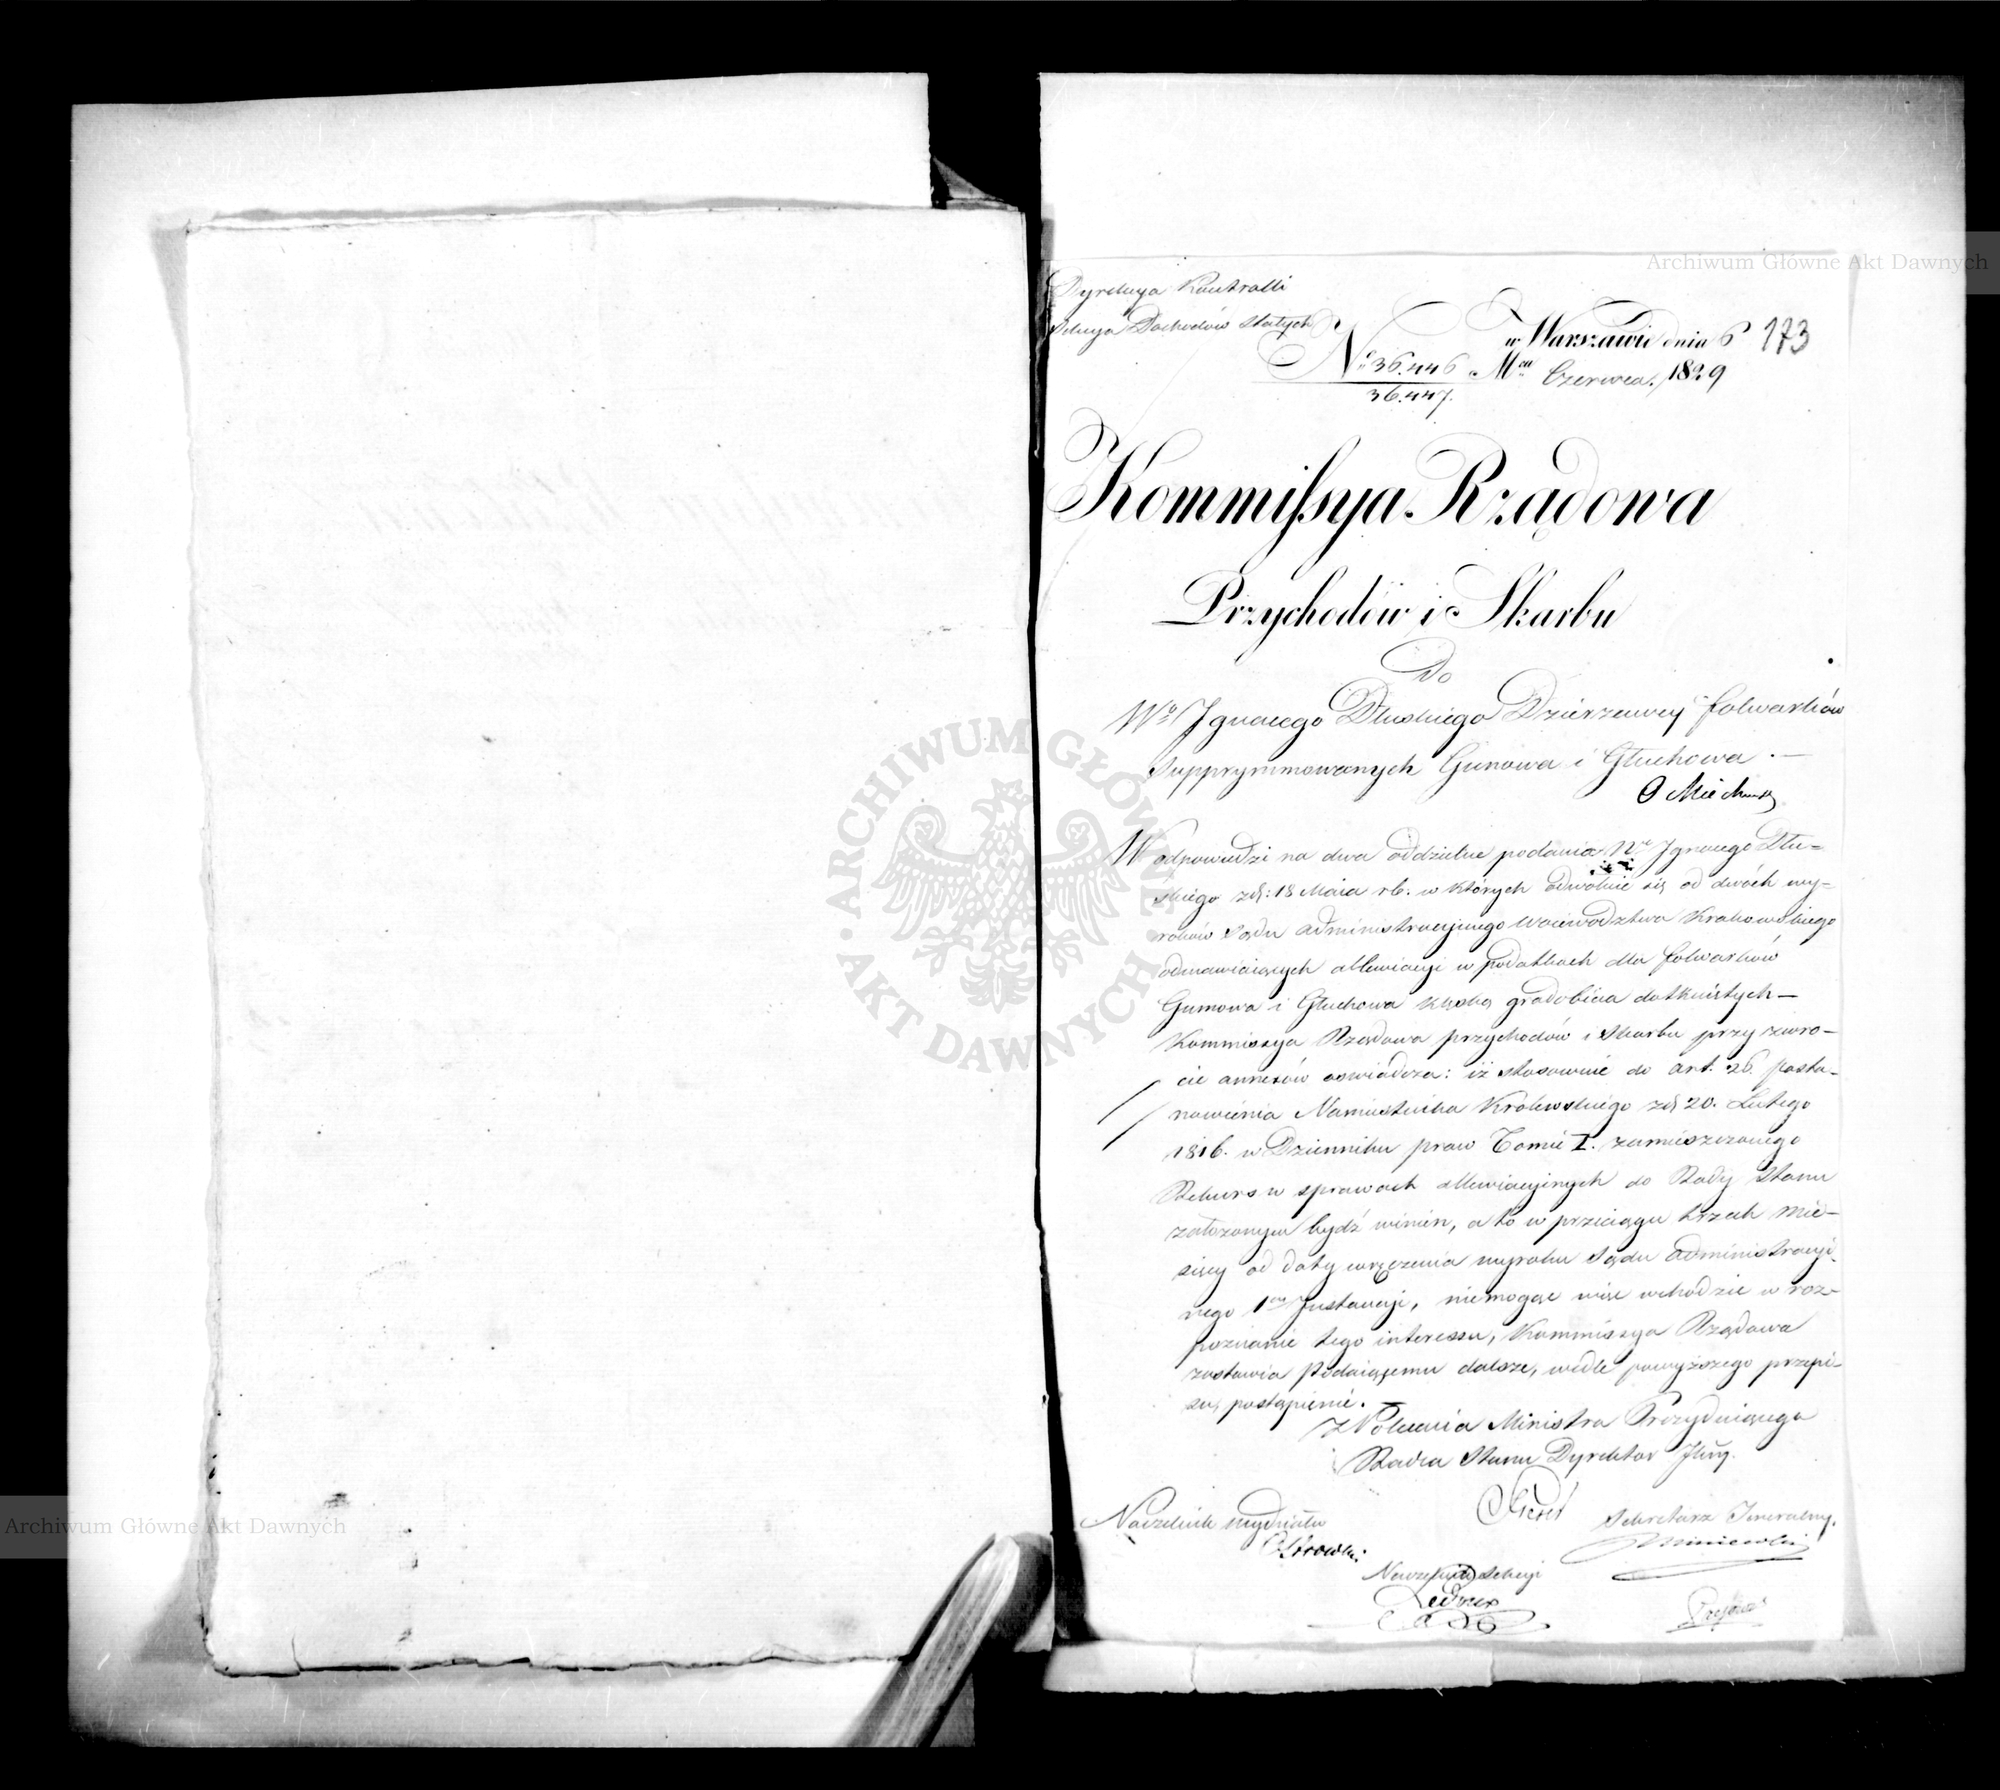 Dyrekcya Kontrolli
Sekcya Dochodów Stałych
w Warszawie dnia 6 173
No 36.446 Mca Czerwca 1829
36.447.
Kommissya Rządowa
Przychodów i Skarbu
Do
Wo Ignacego Dłuskiego Dzierzawcy folwarków
supprymmowanych Gunowa i Głuchowa . —
O Miechows
W odpowiedzi na dwa oddzielne podania Wo Ignacego Dłu-
skiego zd: 18 Maia rb. w których odwołuie się od dwóch wy-
roków Sądu administracyinego Woiewództwa Krakowskiego
odmawiaiących allewiacyi w podatkach dla folwarków
Gunowa i Głuchowa klęską gradobicia dotkniętych —
Kommissya Rządowa przychodów i Skarbu przy zwro-
cie annexów oswiadcza: iż stosownie do art. 26. posta-
nowienia Namiestnika Królewskiego zd 20. Lutego
1816. w Dzienniku praw Tomie I. zamieszczonego
Rekurs w sprawach allewiacyinych do Rady Stanu
założonym bydź winien, a to w przeciągu trzech mie-
sięcy od daty wręczenia wyroku Sądu administracyi-
nego 1ey Instancyi, niemogąc więc wchodzić w roz-
poznanie tego interessu, Kommissya Rządowa
zostawia Podaiącemu dalsze, wedle powyższego przepi-
su, postąpienie. —
Z Polecenia Ministra Prezyduiącego
Radca Stanu Dyrektor Jlny.
Naczelnik wydziału
Ostrowski
Sekretarz Jeneralny.
Naczelnik Sekcyi
Ledoux
ARCHIWUM GŁÓWNE AKT DAWNYCH
Archiwum Główne Akt Dawnych
Archiwum Główne Akt Dawnych